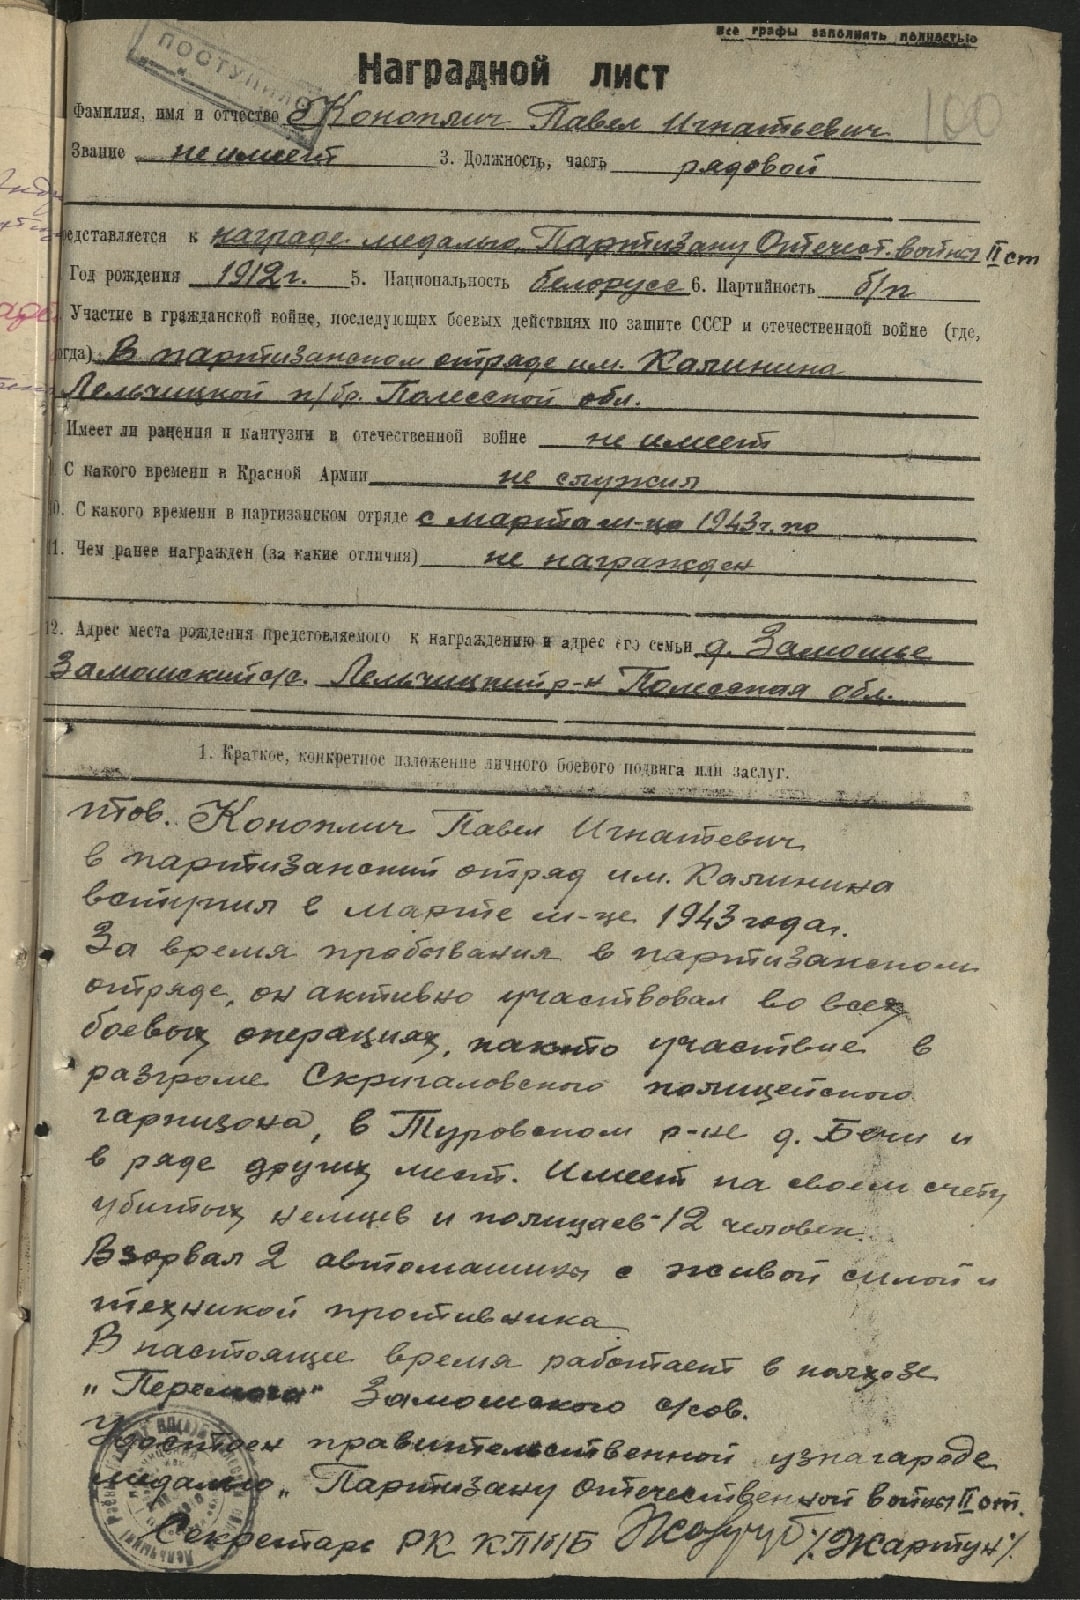 Все графы заполнять полностью
ПОСТУПИЛО
Наградной лист
100
Фамилия, имя и отчество Коноплич Павел Игнатьевич
Звание не имеет 3. Должность, часть рядовой
редставляется к награде медалью „Партизану Отечест. войны II ст
Год рождения 1912 г. 5. Национальность белорусс 6. Партийность б/п
Участие в гражданской войне, последующих боевых действиях по защите СССР и отечественной войне (где,
огда) В партизанском отряде им. Калинина
Лельчицкой п/бр. Полесской обл.
Имеет ли ранения и кантузии в отечественной войне не имеет
С какого времени в Красной Армии не служил
0. С какого времени в партизанском отряде с марта м-ца 1943 г. по
11. Чем ранее награжден (за какие отличия) не награжден
12. Адрес места рождения предстовляемого к награждению и адрес его семьи д. Замошье
Замошский с/с. Лельчицкий р-н Полесская обл.
1. Краткое, конкретное изложение личного боевого подвига или заслуг.
тов. Коноплич Павел Игнатевич
в партизанский отряд им. Калинина
вступил в марте м-це 1943 года.
За время пробывания в партизанском
отряде, он активно участвовал во всех
боевых операциях, как то участвие в
разгроме Скригаловского полицейского
гарнизона, в Туровском р-не д. Бечи и
в ряде других мест. Имеет на своем счету
убитых немцев и полицаев - 12 человек.
Взорвал 2 автомашины с живой силой и
техникой противника
В настоящее время работает в колхозе
„Перемога" Замошского с/сов.
Удостоен правительственной узнагароде
медалью „Партизану Отечественной войны II ст.
Секретарь РК КП/б/Б /Жартун/.